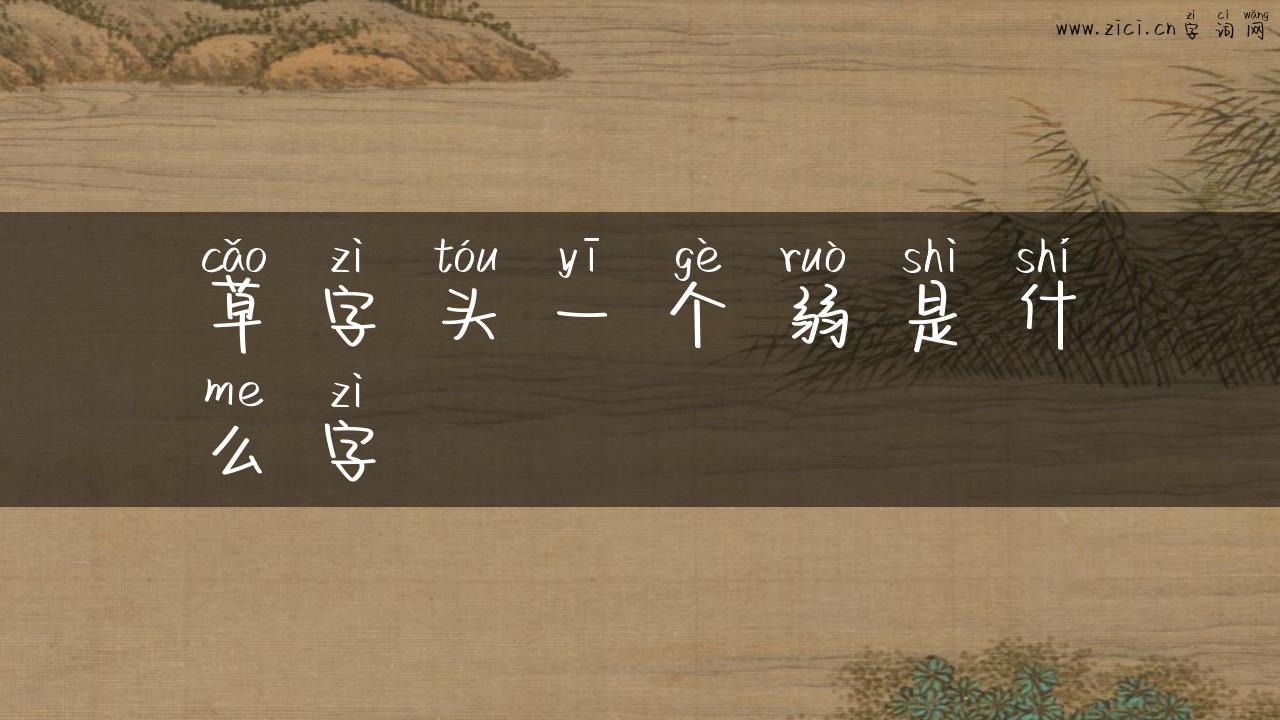 zì cí wǎng
www.zici.cn 字词网
cǎo zì tóu yī gè ruò shì shí
草字头一个弱是什
me zì
么字